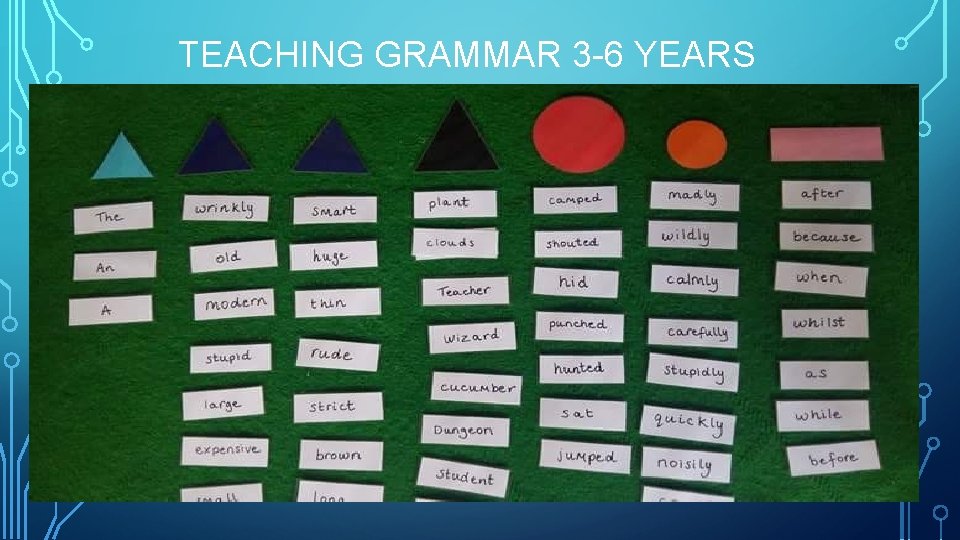 TEACHING GRAMMAR 3-6 YEARS
The
An
A
wrinkly
old
modern
stupid
large
expensive
small
smart
huge
thin
rude
strict
brown
long
plant
clouds
Teacher
wizard
cucumber
Dungeon
student
camped
shouted
hid
punched
hunted
sat
jumped
madly
wildly
calmly
carefully
stupidly
quickly
noisily
after
because
when
whilst
as
while
before